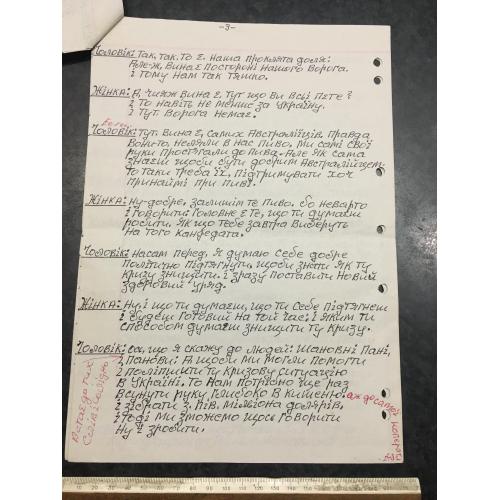 -3-
Чоловік: Так, так. То Є. Наша проклята доля:
Але-ж, вина Є посторонї нашого ворога.
і тому нам так тяшко.
Жінка: А, чихж вина Є, тут що ви всі пєте?
і то навіть не менше за Україну.
і тут ворога немає.
Чоловік: Тут вина Є, самих Австралійців. Правда
вони то, неляли в нас пиво. Ми самі свої
руки простягали до пива. Але як сама
знаєш щоби бути добрим Австралійцем
то таки треба їх, підтримувати хоч
принаймі при пиві.
Жінка: Ну-добре, залишім те пиво. Бо неварто
і говорити. Головне Є те, що ти думаєш
робити. Як що тебе завтра виберуть
на того кандедата.
Чоловік: Насам перед, я думаю себе добре
політично підтягнути, щоби знати як ту
кризу знищити. і зразу поставити новий
здоровий уряд.
Жінка: Ну, і що ти думаєш, що ти себе підтягнеш
і будеш готовий на той час; і яким ти
способом думаєш знищити ту кризу.
Чоловік: Ось, що я скажу до людей: Шановні Пані,
і Панове: А щоби ми могли помогти
і поліпшити ту кризову ситуацію
в Україні. То нам потрібно ще раз
всунути руку глибоко в кишеню. аж до самої
і зібрати з, пів, мілівйона долярів,
і тоді ми зможемо щось говорити
ну і зробити.